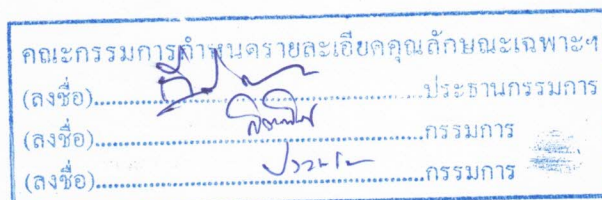 คณะกรรมการกำหนดรายละเอียดคุณลักษณะเฉพาะฯ
(ลงชื่อ)........................................ประธานกรรมการ
(ลงชื่อ)........................................กรรมการ
(ลงชื่อ)........................................กรรมการ